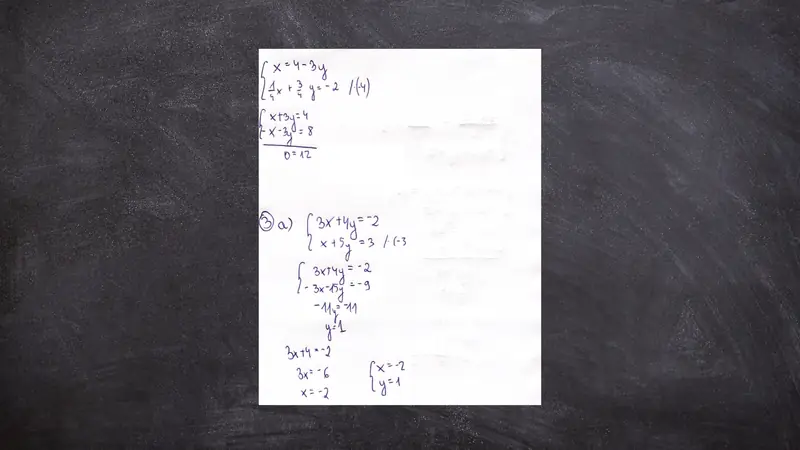 x = 4 - 3y
1/4 x + 3/4 y = -2 /·(-4)
x + 3y = 4
-x - 3y = 8
0 = 12
3 a) 3x + 4y = -2
x + 5y = 3 /·(-3
3x + 4y = -2
-3x - 15y = -9
-11y = -11
y = 1
3x + 4 = -2
3x = -6
x = -2
x = -2
y = 1